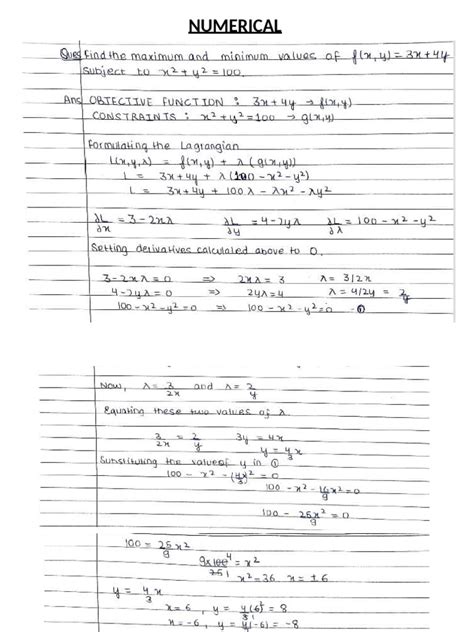 NUMERICAL
Ques Find the maximum and minimum values of f(x,y) = 3x + 4y
subject to x² + y² = 100.
Ans OBJECTIVE FUNCTION : 3x + 4y → f(x,y)
CONSTRAINTS : x² + y² = 100 → g(x,y)
Formulating the Lagrangian
L(x,y,λ) = f(x,y) + λ (g(x,y))
L = 3x + 4y + λ (100 - x² - y²)
L = 3x + 4y + 100λ - λx² - λy²
∂L/∂x = 3 - 2xλ ∂L/∂y = 4 - 2yλ ∂L/∂λ = 100 - x² - y²
Setting derivatives calculated above to 0.
3 - 2xλ = 0 ⇒ 2xλ = 3 λ = 3/2x
4 - 2yλ = 0 ⇒ 2yλ = 4 λ = 4/2y = 2/y
100 - x² - y² = 0 ⇒ 100 - x² - y² = 0 - ①
Now, λ = 3/2x and λ = 2/y
Equating these two values of λ
3/2x = 2/y 3y = 4x
y = 4x/3
Substituting the value of y in ①
100 - x² - (4x/3)² = 0
100 - x² - 16x²/9 = 0
100 - 25x²/9 = 0
100 = 25x²/9
9x100 4/25 1 = x²
x² = 36 x = ± 6
y = 4x/3
x = 6, y = 4(6)/3 = 8
x = -6, y = 4(-6) = -8